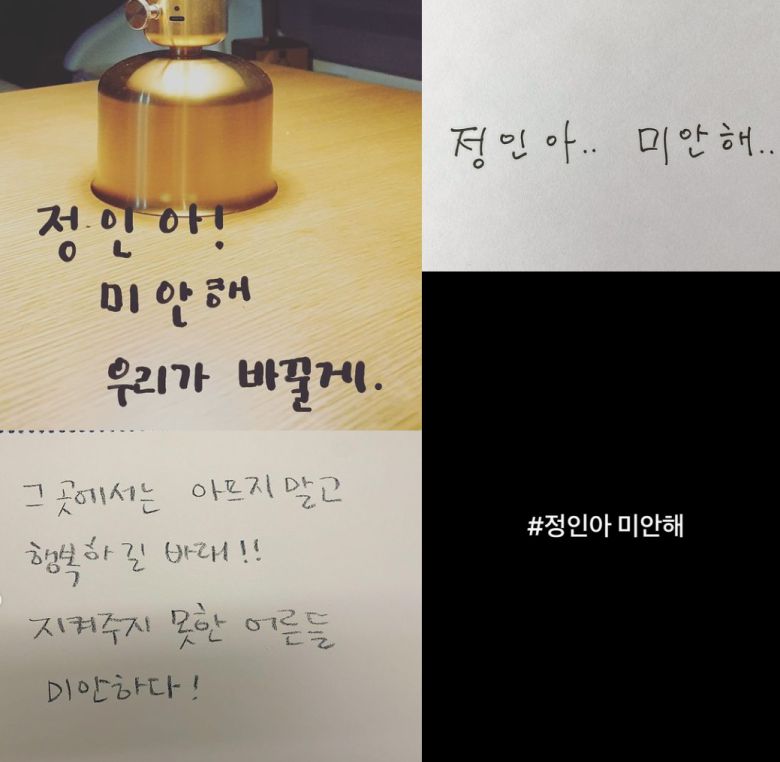 정인아!
미안해
우리가 바꿀게.
정인아.. 미안해..
그 곳에서는 아프지말고
행복하길 바래!!
지켜주지 못한 어른들
미안하다!
#정인아 미안해